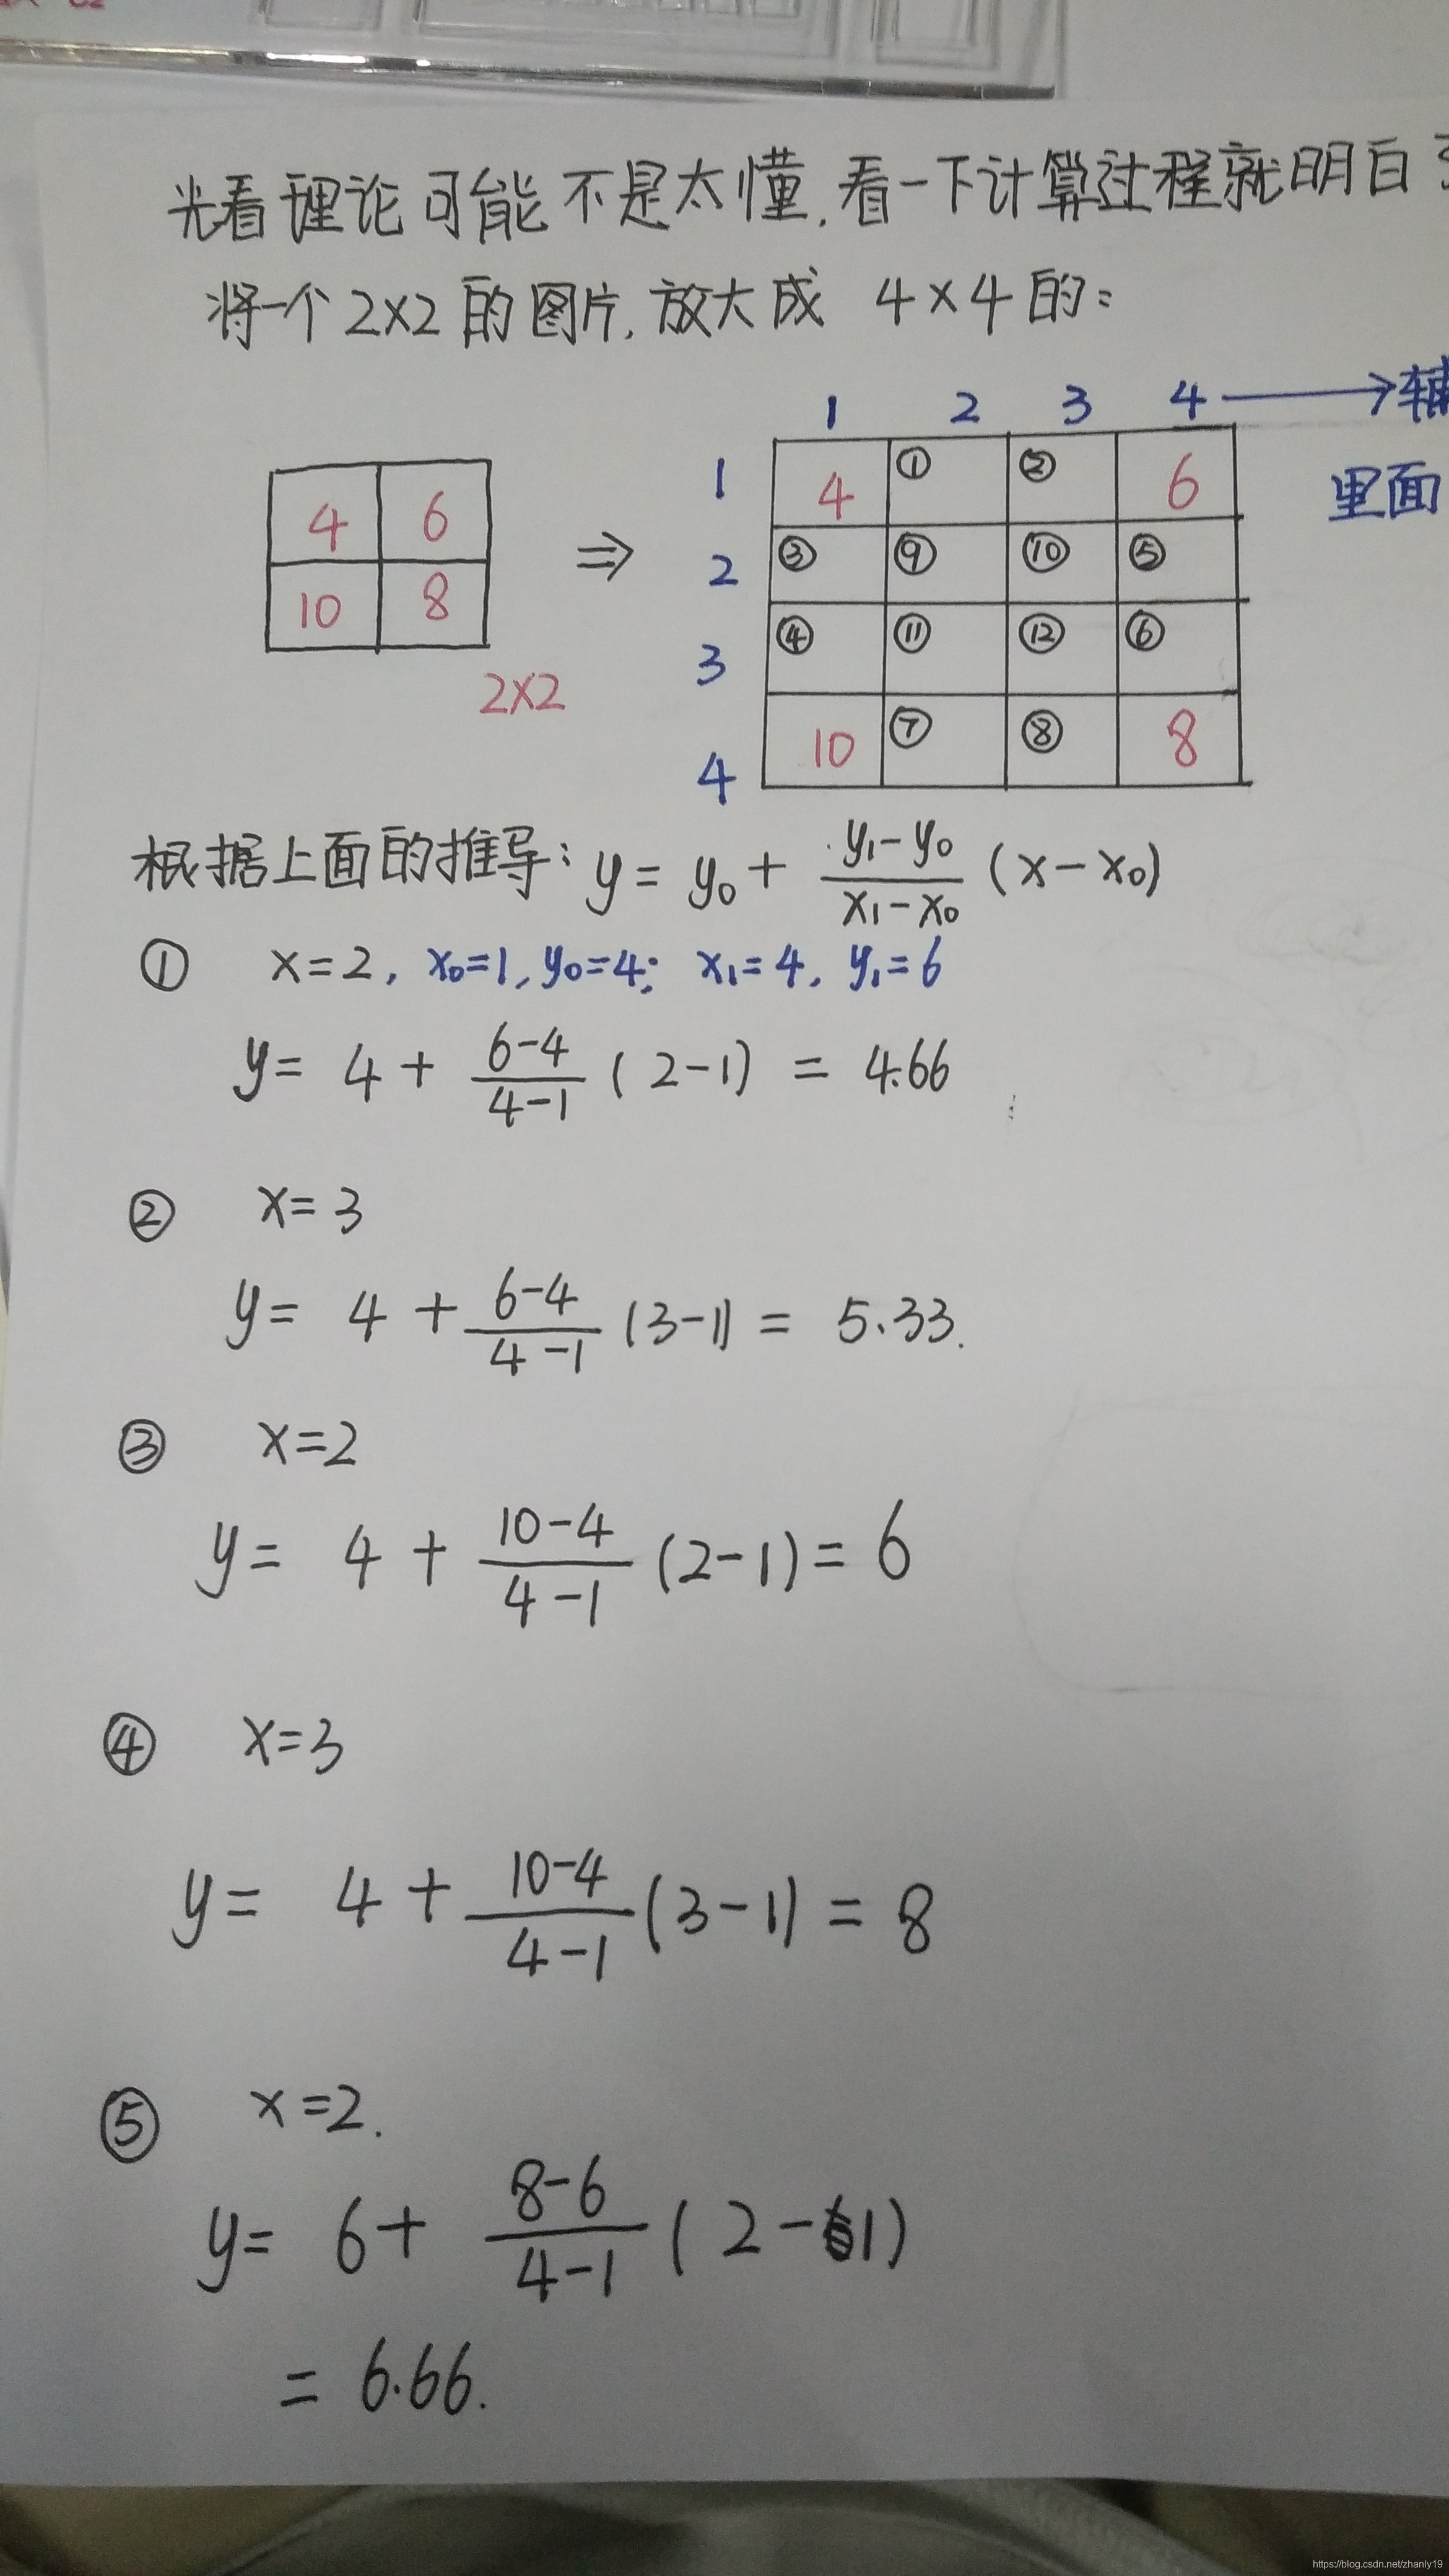 光看理论可能不是太懂,看一下计算过程就明白
将一个2×2的图片,放大成 4×4的:
1 2 3 4 →
里面
4 6
10 8
2×2
⇒
1 4 ① ② 6
2 ③ ⑨ ⑩ ⑤
3 ④ ⑪ ⑫ ⑥
4 10 ⑦ ⑧ 8
根据上面的推导: y = y₀ + (y₁-y₀)/(x₁-x₀) (x-x₀)
① x=2, x₀=1, y₀=4; x₁=4, y₁=6
y= 4 + (6-4)/(4-1) (2-1) = 4.66
② x=3
y= 4 + (6-4)/(4-1) (3-1) = 5.33.
③ x=2
y= 4 + (10-4)/(4-1) (2-1) = 6
④ x=3
y= 4 + (10-4)/(4-1) (3-1) = 8
⑤ x=2.
y= 6 + (8-6)/(4-1) (2-1)
= 6.66.
https://blog.csdn.net/zhanly19